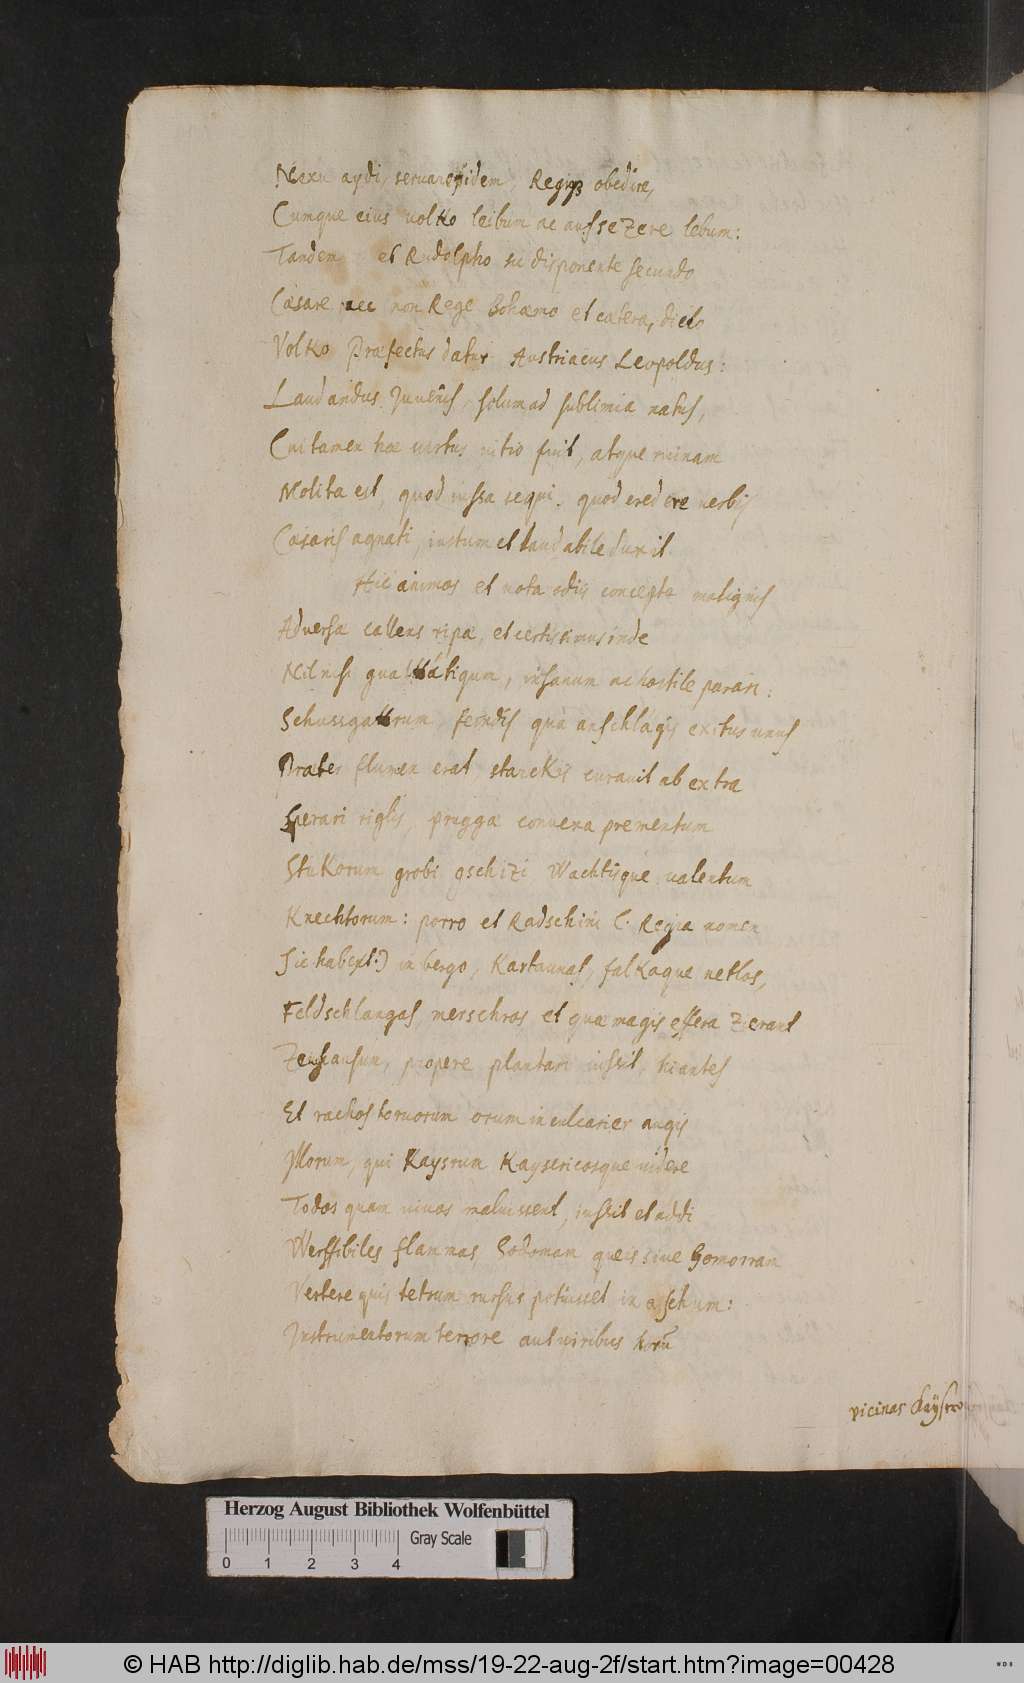 Nexu aydi, seruare fidem, Regique obedire,
Cumque eius uolko leibum ac aussezere lebum:
Tandem et Rudolpho su disponente secundo
Cæsare nec non Rege Bohæmo et cætera, dicto
Volko Præfectus datur Austriacus Leopoldus:
Laudandus Juuenis, solum ad sublimia natus,
Cui tamen hæc uirtus uitio fuit, atque ruinam
Molita est, quod iussa sequi, quod credere uerbis
Cæsaris agnati, iustum et laudabile duxit.
Hic animos et uota odiis concepta malignis
Aduersæ callens ripæ, et certissimus inde
Nil nisi gualtátiqum, insanum ac hostile parari:
Schussgattrum, feindis quà anschlagis exitus unus
Præter flumen erat, starckis curauit ab extra
Sperari riglis, pruggæ conuexa prementum
Stukorum grobi gschizi Wachtisque ualentum
Knechtorum: porro et Radschini (: Regia nomen
Sic habet:) in bergo, Kartaunas, falkaque netlos,
Feldschlangas, merschros, et quæ magis effera Zierant
Zeughausum, propere plantari iussit, hiantes
Et rachos toruorum orum inculcarier augis
Illorum, qui Kaysrum Kaysericosque uidere
Todos quam uiuos maluissent, iussit et addi
Werffibiles flammas Sodomam queis siue Gomorram
Vertere quis tetrum rursus potuisset in asschum:
Instrumentorum terrore aut uiribus horũ
vicinas Kaÿsero
Herzog August Bibliothek Wolfenbüttel
Gray Scale
0 1 2 3 4
© HAB http://diglib.hab.de/mss/19-22-aug-2f/start.htm?image=00428